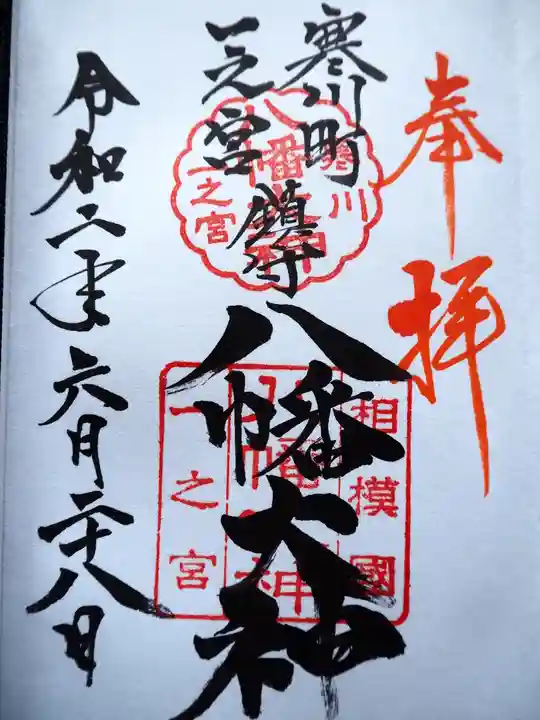 奉拝
寒川町
一之宮
鎮守
八幡大神
令和二年六月二十八日
寒川
八幡大神
一之宮
相模國
八幡大神
一之宮